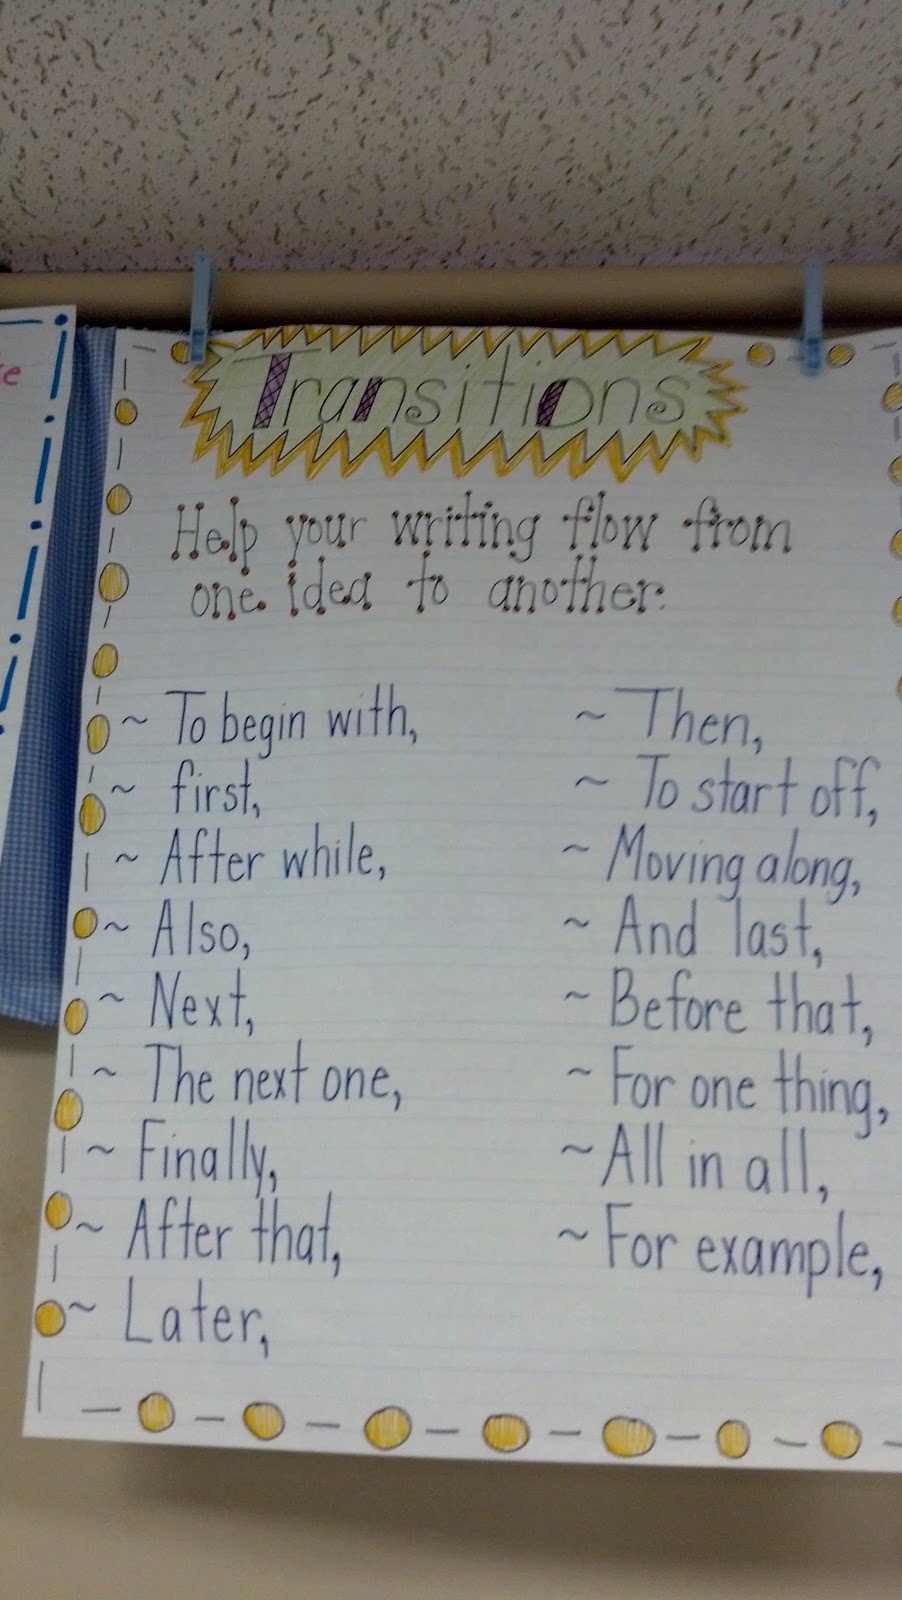 Transitions
Help your writing flow from
one idea to another.
~ To begin with,
~ first,
~ After while,
~ Also,
~ Next,
~ The next one,
~ Finally,
~ After that,
~ Later,
~ Then,
~ To start off,
~ Moving along,
~ And last,
~ Before that,
~ For one thing,
~ All in all,
~ For example,